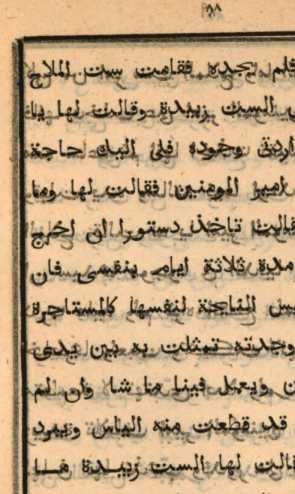 ٩٨
فلم يجده فقامت ست الملاح
الست زبيدة وقالت لها يا
اردتي وجوده فلي اليك حاجة
امير المومنين فقالت لها وما
قالت تاخذي دستورا ان اخرج
مدة ثلاثة ايام بنفسي فان
لنفسها كالمستاجرة
وجدته تمثلت به بين يدي
ويعمل فينا ما شا وان لم
قد قطعت منه الياس ويبرد
قالت لها الست زبيدة هـا